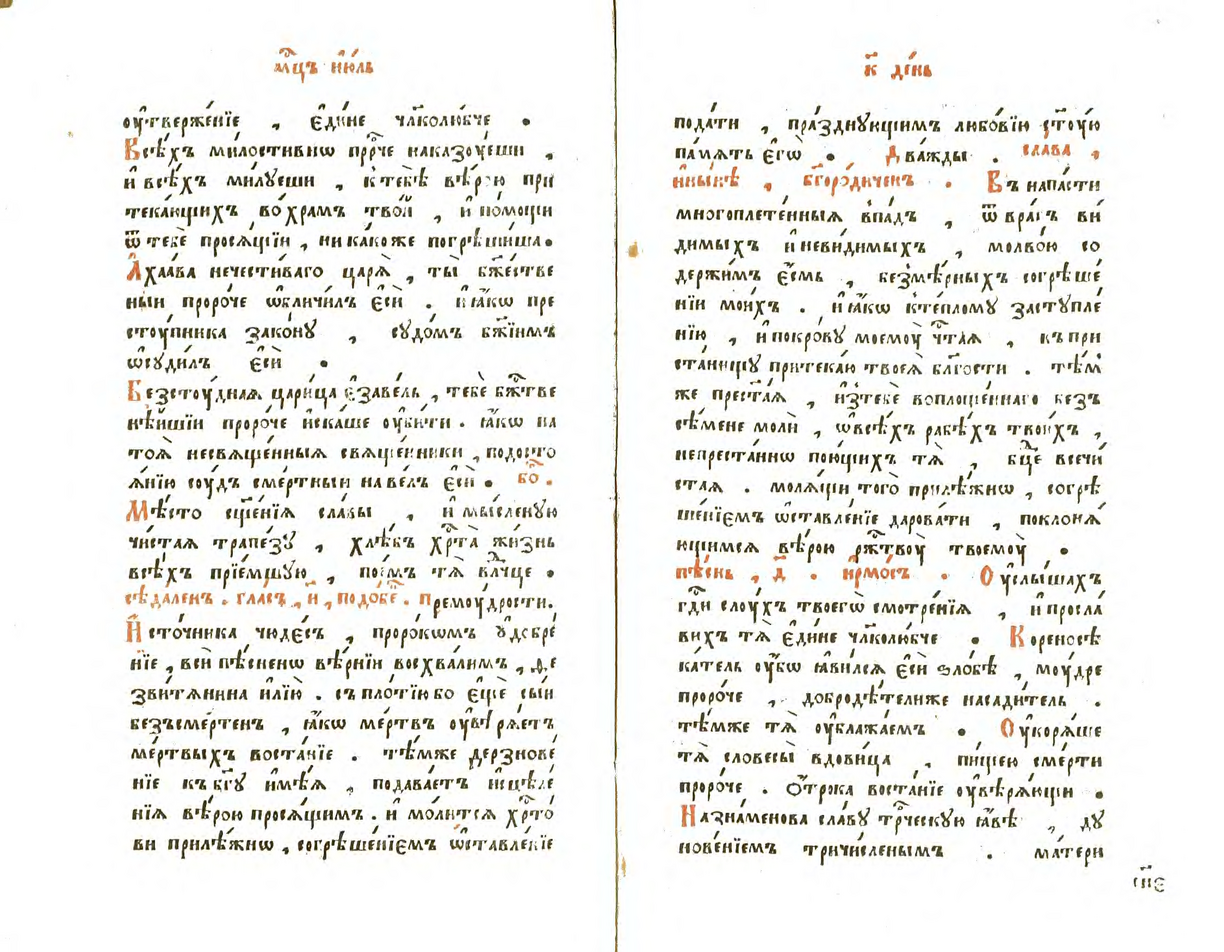 мц҃ъ ию́ль
оу҆твержє́нїе , є҆ди́не чл҃колю́бче .
Всѣ́хъ ми́лостивнѡ прⷪ҇ро́че наказоу́еши ,
и҆ всѣ́хъ ми́лꙋеши , к тебѣ̀ вѣ́рою при
тека́ющихъ во хра́мъ тво́й , и҆ по́мощи
ѿ тебѐ прося́щїи , никакоже погрѣши́ша .
А҆хаа́ва нечести́ваго царѧ̀ , ты̀ бж҃е́стве
ныи проро́че ѡ҆бличи́лъ є҆сѝ . и҆ ꙗ҆́кѡ пре
стоу́пника зако́нꙋ , сꙋдо́мъ бж҃їимъ
ѡ҆сꙋди́лъ є҆сѝ .
Безстоу́днаѧ цари́ца є҆заве́ль , тебѐ бжⷭ҇тве
нѣ́йшїи проро́че иска́ше оу҆би́ти . ꙗ҆́кѡ на
тоѧ̀ несвѧще́нныѧ свѧще́нники , по досто
ѧ́нїю соу́дъ сме́ртныи наве́лъ є҆сѝ . бо҃ .
Мѣ́сто сщ҃е́нїѧ сла́вы , и҆ мы́сленꙋю
чи́стаѧ трапе́зꙋ , хлѣ́бъ хрⷭ҇та̀ жи́знь
всѣ́хъ прїе́мшꙋю , пое́мъ тѧ̀ влⷣчце .
сѣда́ленъ . гла́съ , и҃ , подо́бе . Премоу́дрости .
И҆сто́чника чюде́съ , проро́кѡмъ ᲂу҆добре́
нїе , всѝ пѣ́сненѡ вѣ́рнїи восхва́лимъ , ѳе
звитѧ́нина илїю̀ . съ пло́тїю бо є҆щѐ сы́й
безъсме́ртенъ , ꙗ҆́кѡ ме́ртвъ оу҆вѣрѧ́етъ
ме́ртвыхъ воста́нїе . тѣ́мже дерзнове́
нїе къ бг҃ꙋ и҆мѣ́ѧ , подава́етъ исцѣле
нїѧ вѣ́рою прося́щимъ . и҆ мо́литсѧ хрⷭ҇то́
ви прилѣ́жнѡ , согрѣше́нїемъ ѡ҆ставле́нїе
к҃ де́нь
пода́ти , пра́зднꙋющимъ любо́вїю ст҃оую
па́мѧть є҆гѡ̀ . Два́жды . сла́ва ,
и҆ны́нѣ , бг҃оро́диченъ . Въ напа́сти
многоплете́нныѧ впа́дъ , ѿ вра́гъ ви́
димыхъ и҆ неви́димыхъ , молво́ю со
держи́мъ є҆́смь , безмѣ́рныхъ согрѣше́
нїи мои́хъ . и҆ ꙗ҆́кѡ к те́пломꙋ застꙋпле́
нїю , и҆ покро́вꙋ моемоу̀ чⷭ҇таѧ , къ при
ста́нищꙋ притека́ю твоеѧ̀ бл҃гости . тѣ́м
же прест҃аѧ , и҆з тебѐ воплоще́ннаго безъ
сѣ́мене молѝ , ѡ҆ всѣ́хъ рабѣ́хъ твои́хъ ,
непреста́ннѡ пою́щихъ тѧ̀ , бц҃е всечи́
стаѧ . молѧ́щи того̀ прилѣ́жнѡ , согрѣ
ше́нїемъ ѡ҆ставле́нїе дарова́ти , поклонѧ́
ющимсѧ вѣ́рою ржⷭ҇твоу̀ твоемоу̀ .
пѣ́снь , д҃ . и҆рмо́съ . Оу҆слы́шахъ
гд҃и слоу́хъ твоегѡ̀ смотре́нїѧ , и҆ просла́
вихъ тѧ̀ є҆ди́не чл҃колю́бче . Кореносѣ
ка́тель оу҆́бѡ ꙗ҆ви́лсѧ є҆сѝ ѕло́бѣ , моу́дре
проро́че , добродѣ́телиже насади́тель .
тѣ́мже тѧ̀ оу҆блажа́емъ . Оу҆корѧ́ше
тѧ̀ словесы̀ вдови́ца , пи́щею сме́рти
проро́че . О҆́трока воста́нїе оу҆вѣрѧ́ющи .
Назна́менова сла́вꙋ трⷪ҇ческꙋю ꙗ҆́вѣ , дꙋ
нове́нїемъ тричи́сленымъ . ма́тери
сп҃є